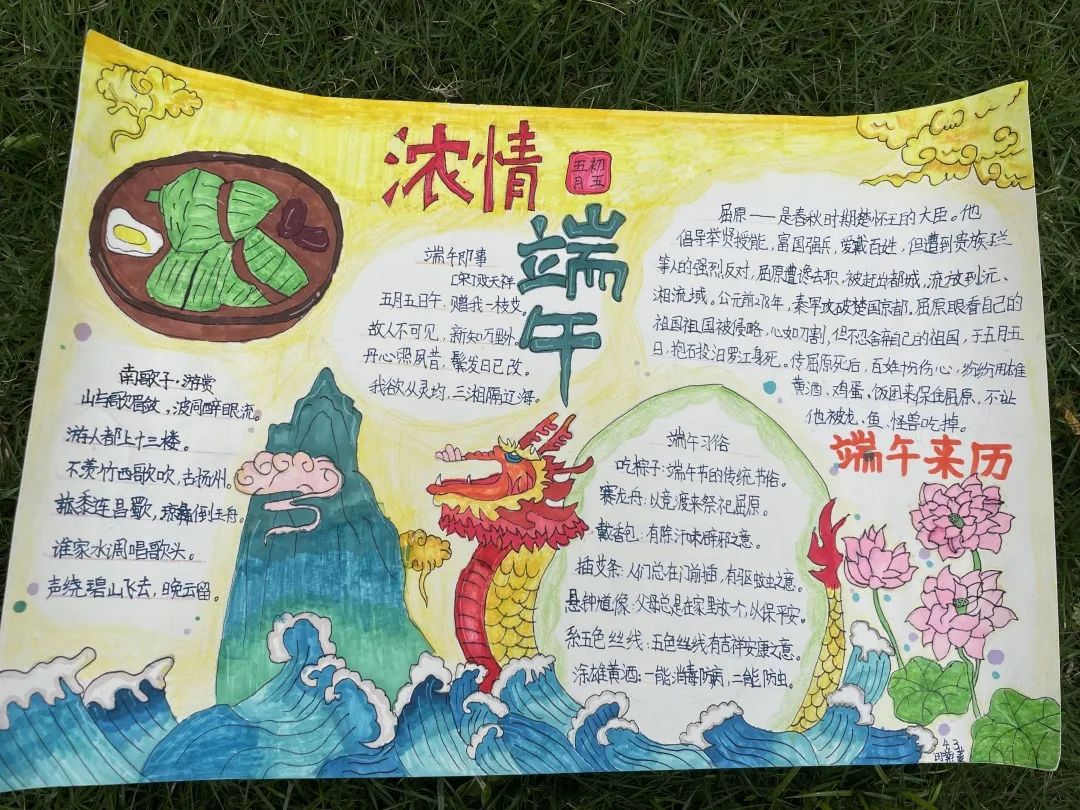 浓情
五月
初五
端午
端午即事
[宋]文天祥
五月五日午，赠我一枝艾。
故人不可见，新知万里外。
丹心照夙昔，鬓发日已改。
我欲从灵均，三湘隔辽海。
屈原——是春秋时期楚怀王的大臣。他
倡导举贤授能，富国强兵，爱戴百姓，但遭到贵族子兰
等人的强烈反对，屈原遭谗去职，被赶出都城，流放到沅、
湘流域。公元前278年，秦军攻破楚国京都。屈原眼看自己的
祖国祖国被侵略，心如刀割，但不忍舍弃自己的祖国，于五月五
日，抱石投汨罗江身死。传屈原死后，百姓十分伤心，纷纷用雄
黄酒、鸡蛋、饭团来保住屈原，不让
他被龙、鱼、怪兽吃掉。
端午来历
南歌子·游赏
山与歌眉敛，波同醉眼流。
游人都上十三楼。
不羡竹西歌吹，古扬州。
菰黍连昌歜，琼彝倒玉舟。
谁家水调唱歌头。
声绕碧山飞去，晚云留。
端午习俗
吃粽子：端午节的传统节俗。
赛龙舟：以竞渡来祭祀屈原。
戴香包：有除汗味辟邪之意。
插艾条：人们总在门前插，有驱蚊虫之意。
悬钟馗像：父母总是在家里放一个，以保平安。
系五色丝线：五色丝线有吉祥安康之意。
涂雄黄酒：一能消毒防病，二能防虫。